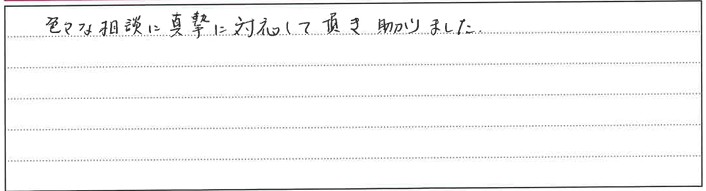 色々な相談に真摯に対応して頂き助かりました.